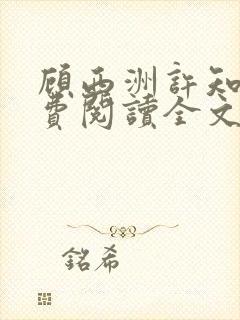 顧西洲許知
費閱讀全文
銘希